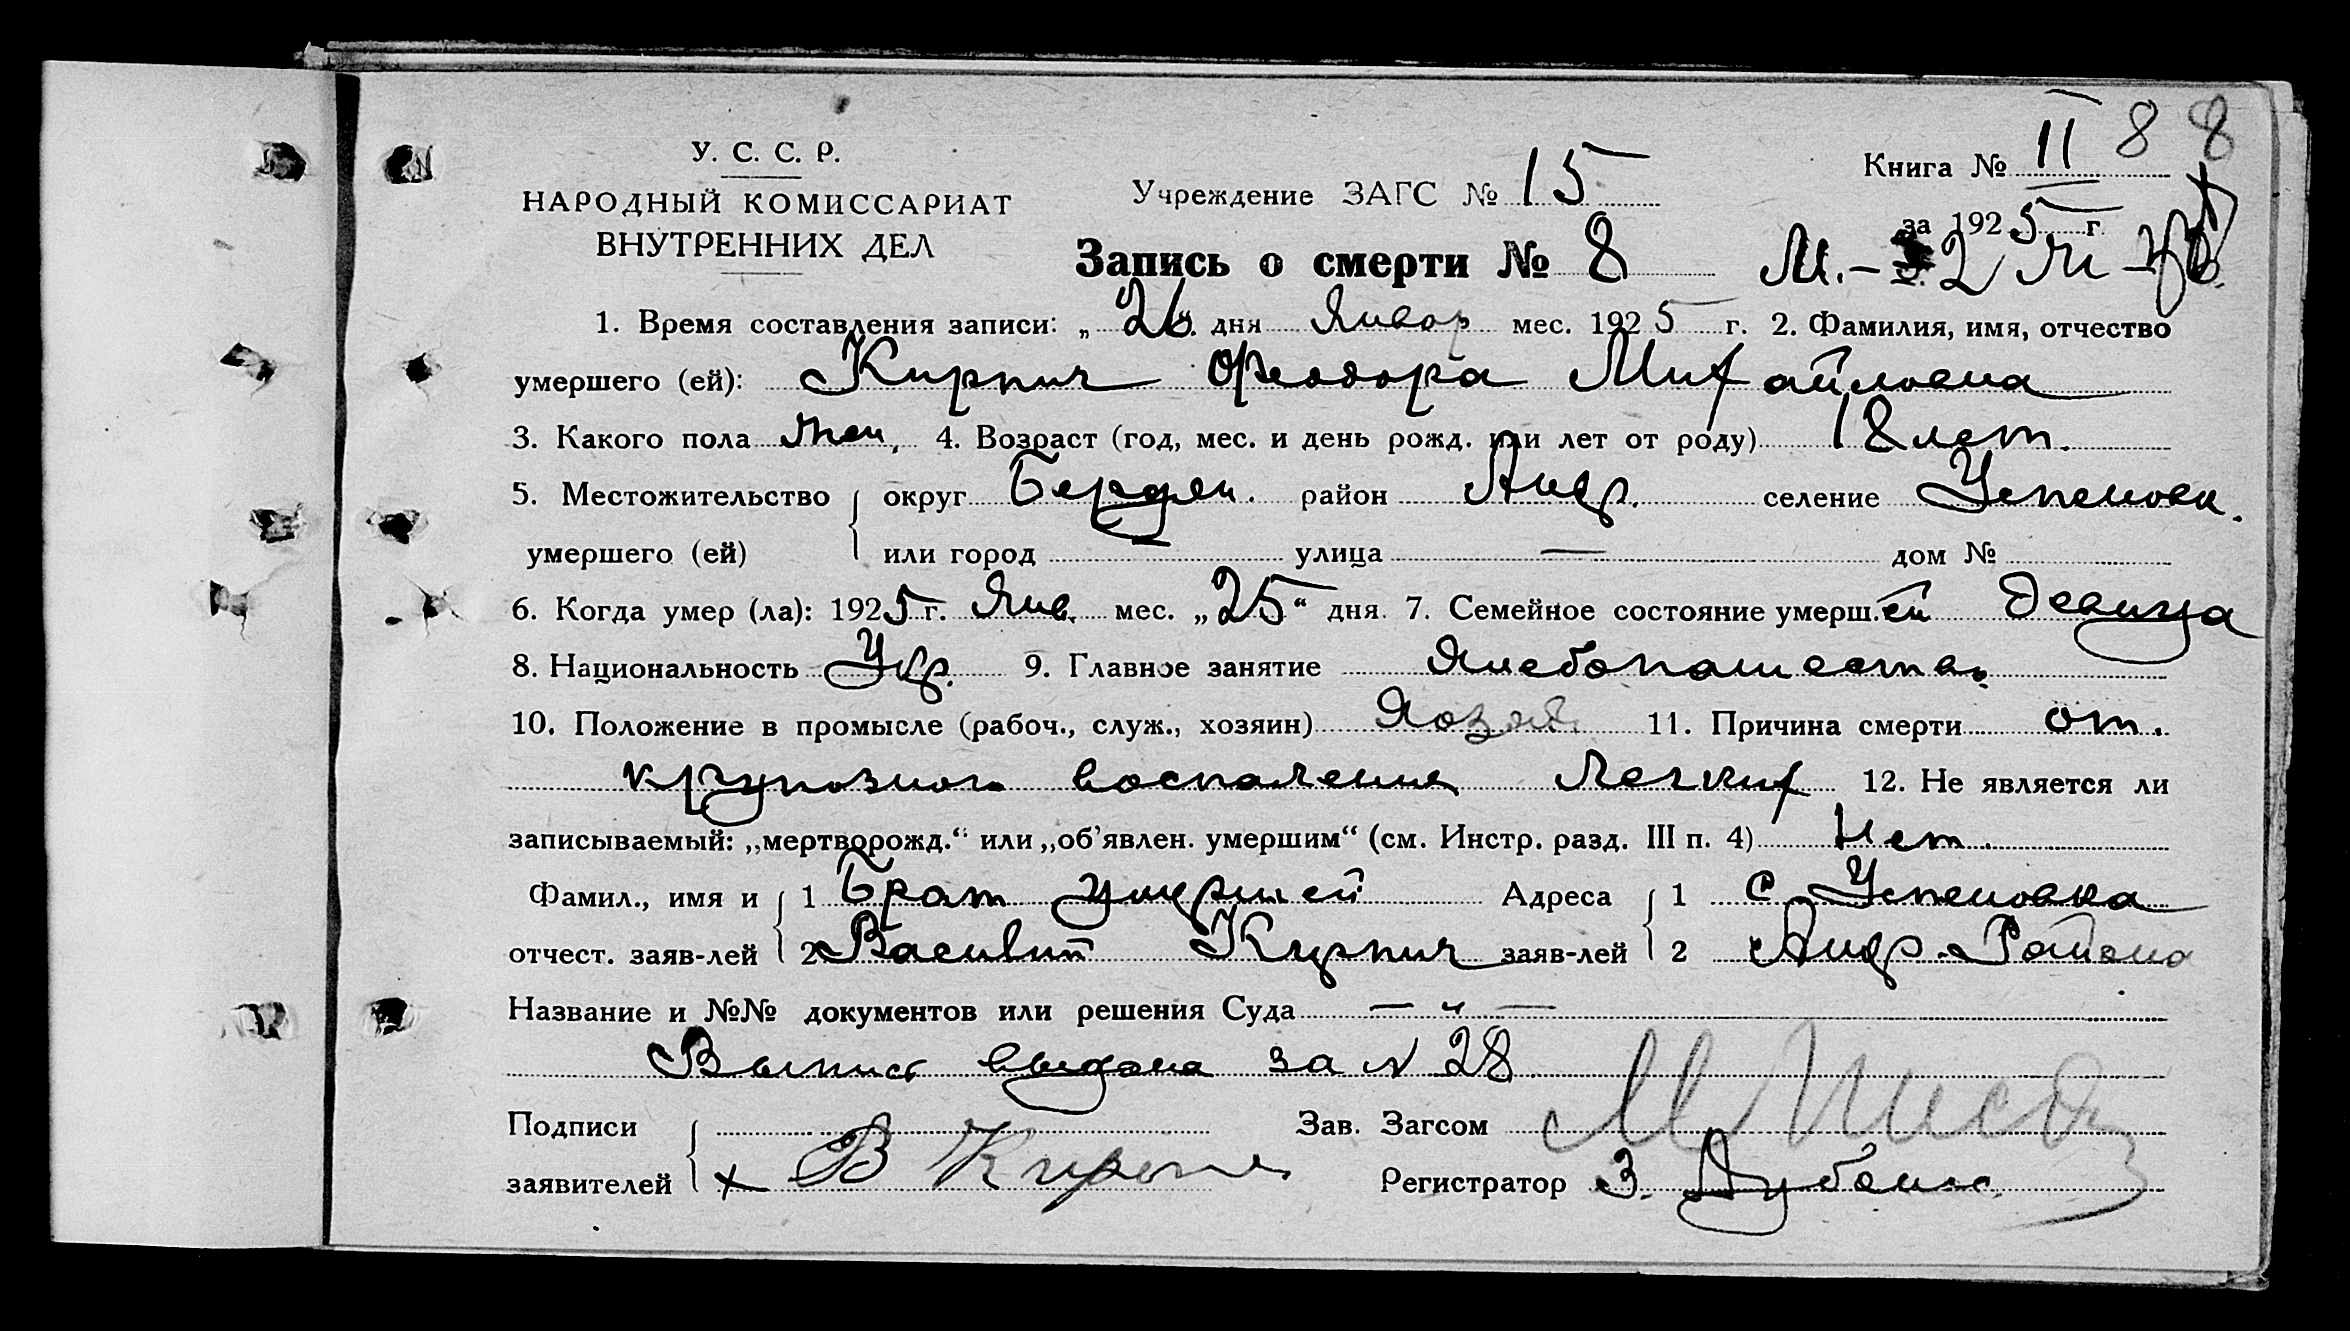 У. С. С. Р.
НАРОДНЫЙ КОМИССАРИАТ
ВНУТРЕННИХ ДЕЛ
Книга № II 8 8
Учреждение ЗАГС № 15
за 1925 г.
Запись о смерти № 8 М.- 2
1. Время составления записи: „26“ дня Январ мес. 1925 г. 2. Фамилия, имя, отчество
умершего (ей): Кирпич Феодора Михайловна
3. Какого пола жен. 4. Возраст (год, мес. и день рожд. или лет от роду) 18 лет.
5. Местожительство округ Бердян. район Андр. селение Успеновк.
умершего (ей) или город — улица — дом №
6. Когда умер (ла): 1925 г. Янв. мес. „25“ дня. 7. Семейное состояние умерш.ей Девица
8. Национальность Укр. 9. Главное занятие Хлебопашество
10. Положение в промысле (рабоч., служ., хозяин) Хозяй. 11. Причина смерти от.
крупозного воспаления легких 12. Не является ли
записываемый: „мертворожд.“ или „об’явлен. умершим“ (см. Инстр. разд. III п. 4) Нет.
Фамил., имя и 1 Брат умершей Адреса 1 с. Успеновка
отчест. заяв-лей 2 Василий Кирпич заяв-лей 2 Андр. Района
Название и №№ документов или решения Суда — „ —
Выпись выдана за № 28
Подписи Зав. Загсом
заявителей + В Кирпич Регистратор З.